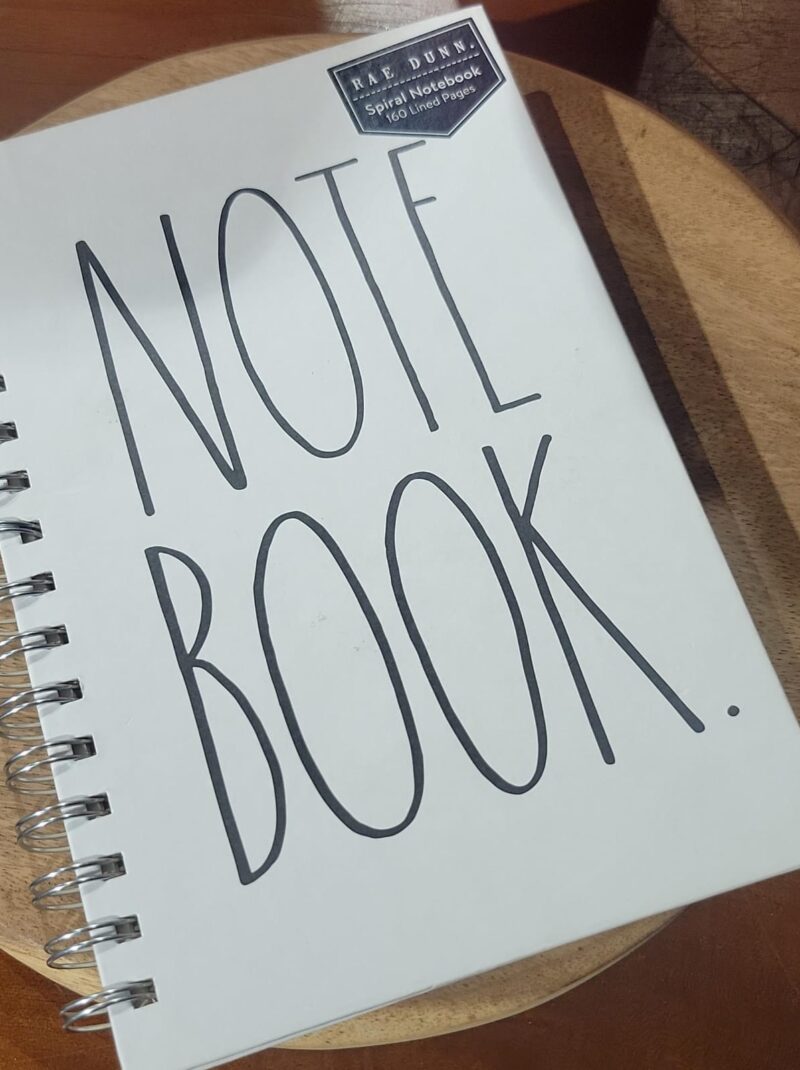 RAE DUNN.
Spiral Notebook
160 Lined Pages
NOTE
BOOK.